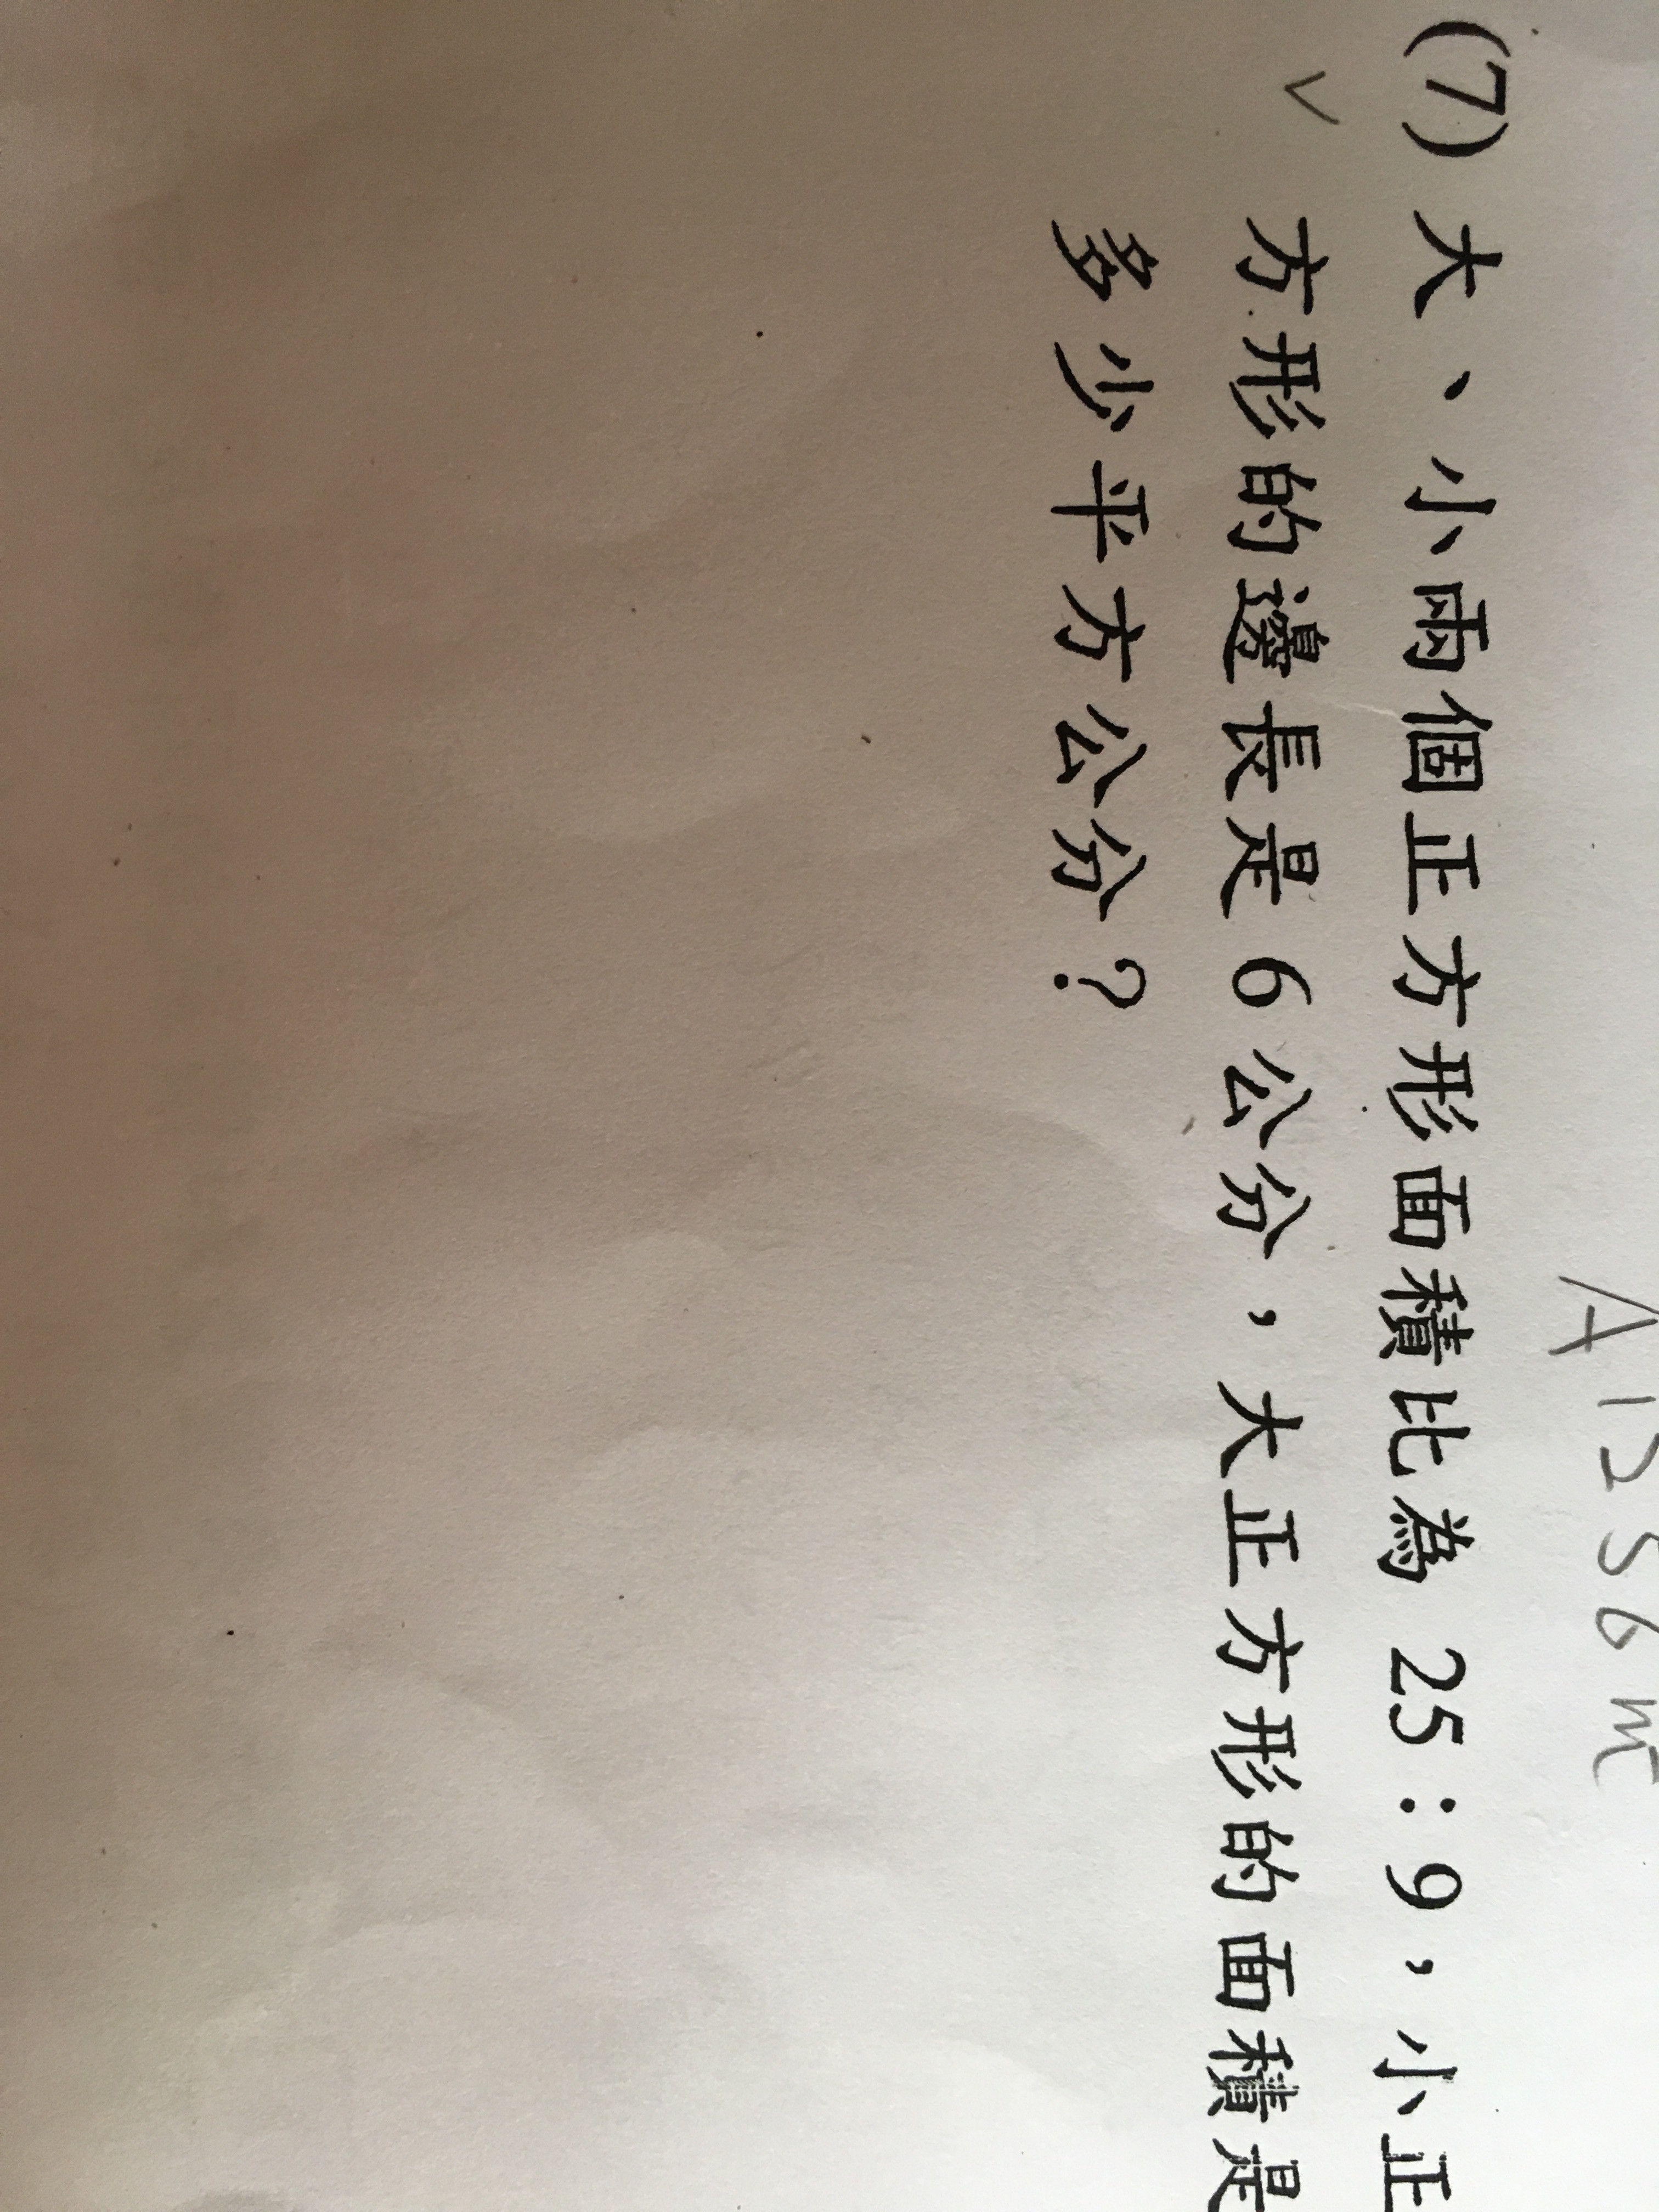 A 1256㎡
(7) 大、小兩個正方形面積比為 25：9，小正
方形的邊長是 6 公分，大正方形的面積是
多少平方公分？